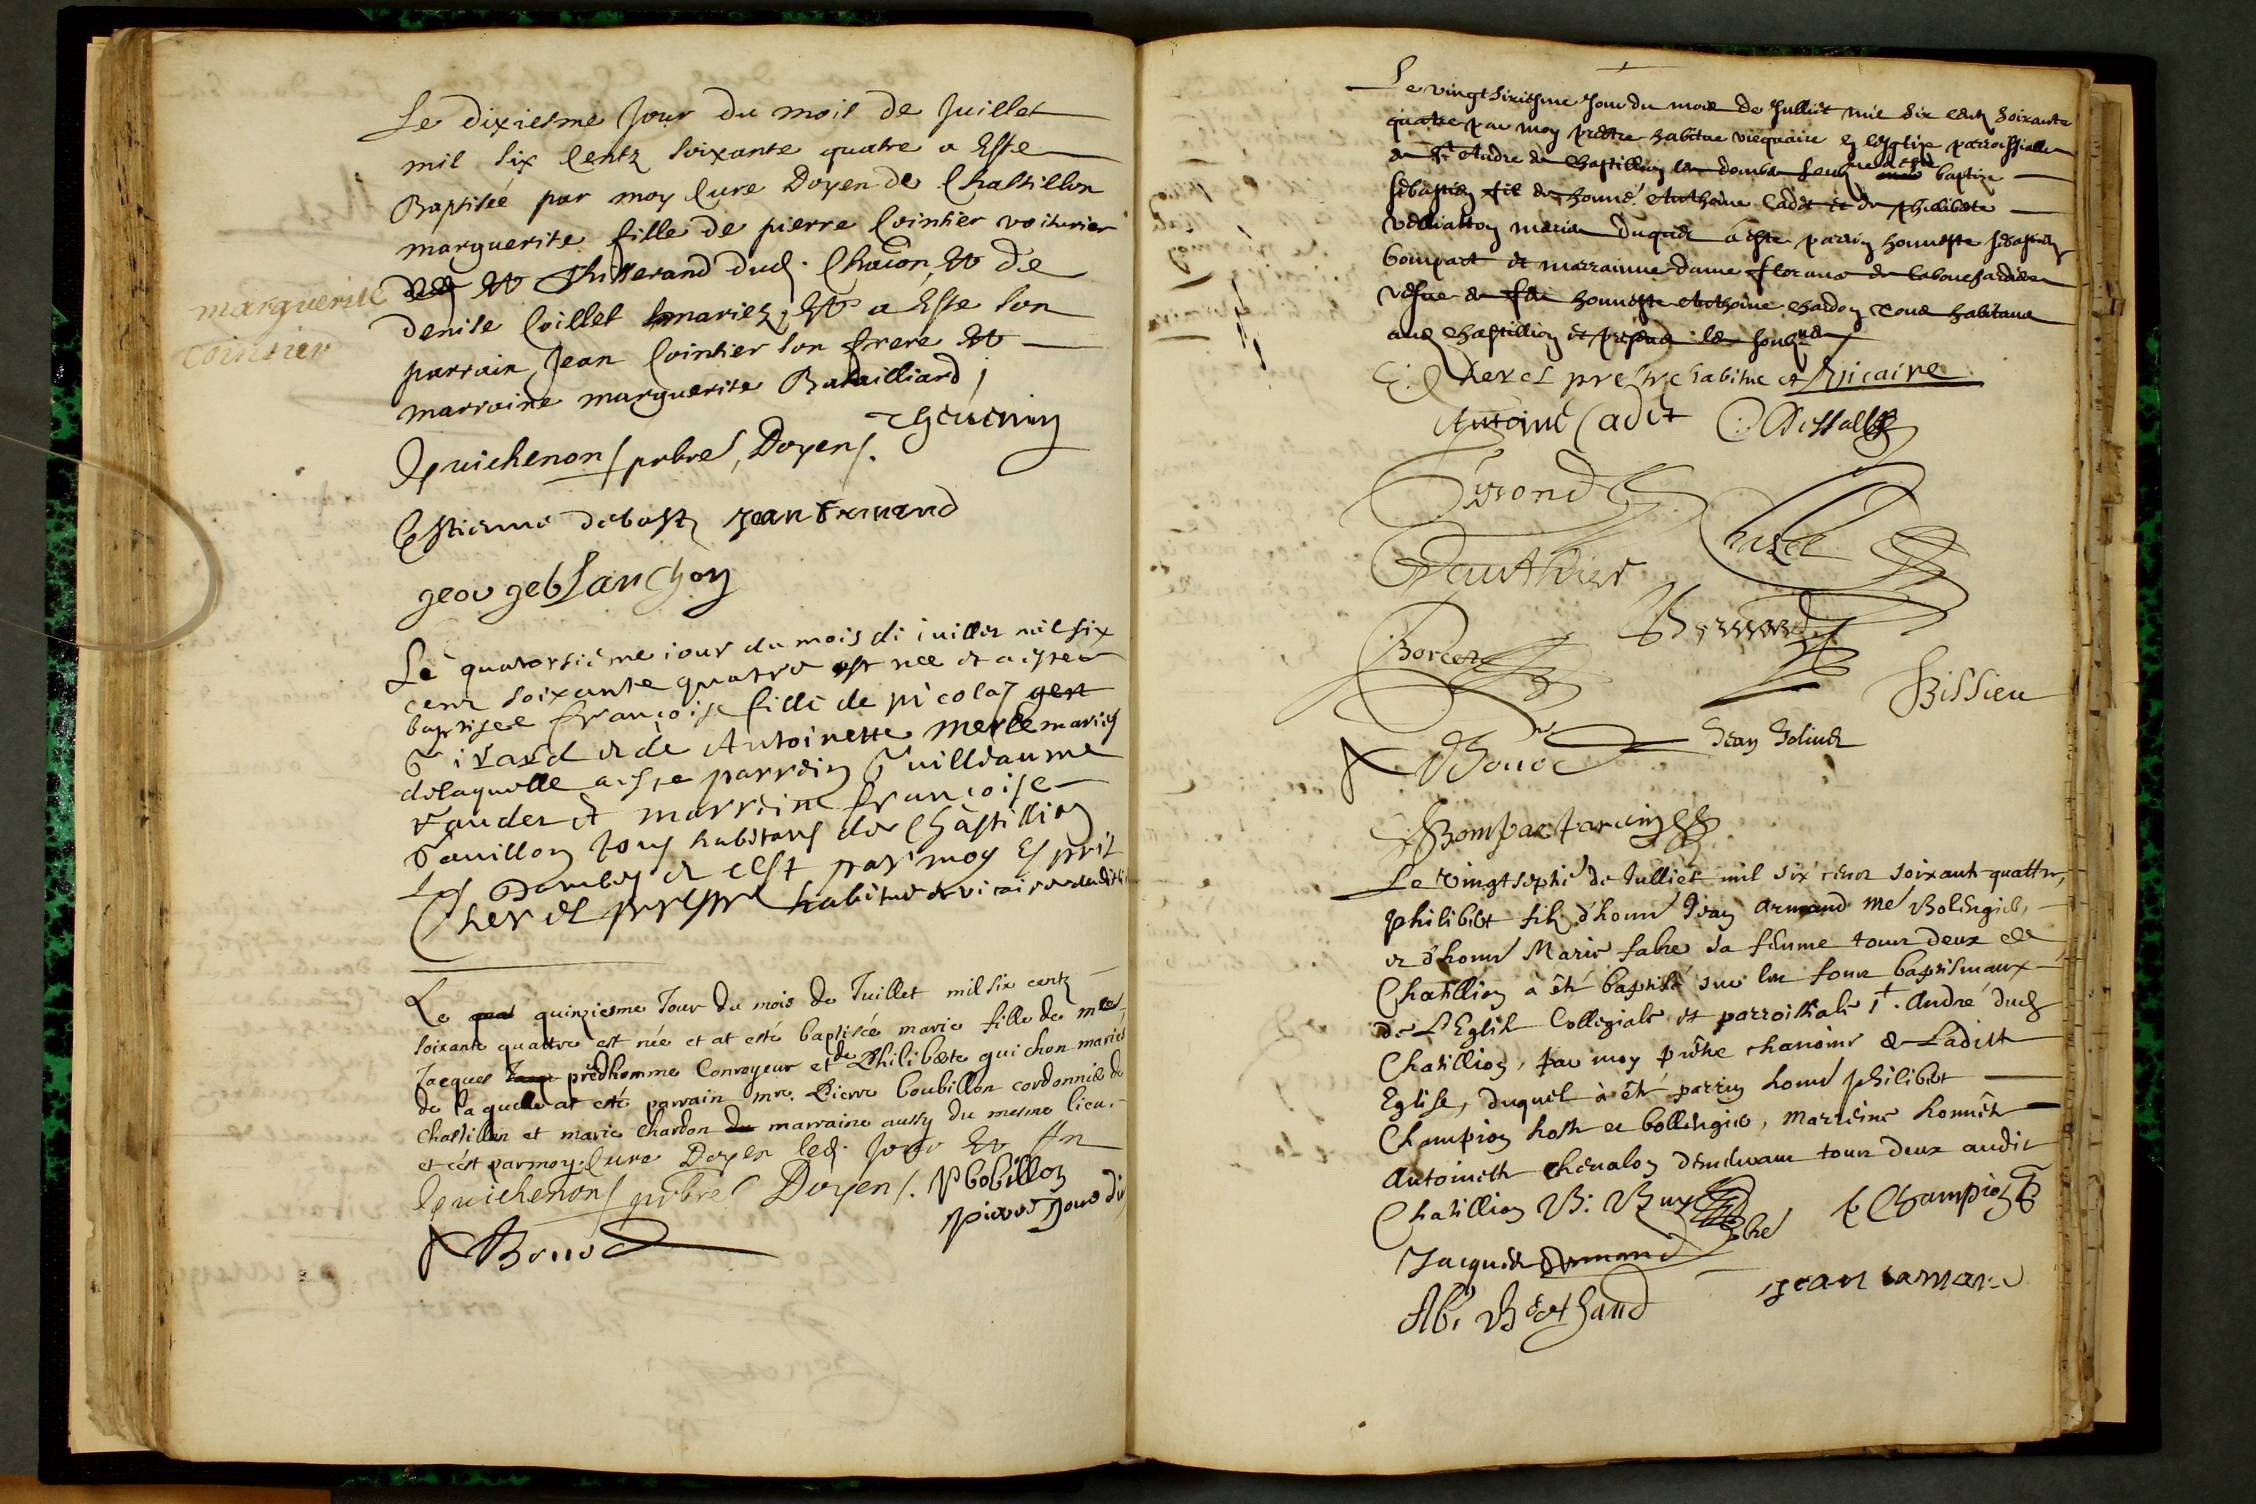 Le dixiesme Jour du mois de Juillet
mil six Centz soixante quatre a Este
Baptisée par moy Cure Doyen de Chastillon
marguerite fille de pierre Cointier voiturier
et Tisserand dud. Chaõn, et de
denise Coillet mariez, et a Este son
parrain Jean Cointier son frere et
marraine marguerite Batailliard ;
marguerite
cointier
Guichenon pbre, Doyen. Theuenin
Estienne debost Jean Armand
george blanchon
Le quatorsiéme iour du mois di iuillet mil six
cent soixante quatre est nee et a estee
baptisee françoise fille de nicolas gert
Girard et de Antoinette merle mariés
de laquelle a este parrein Guilleaume
et marreine françoise
Tauillon tous habitans de Chastillion
Les Dombes et cest par moy Esprit
Cheret prestre habitue et vicaire dudit
Le quat quinziesme Jour du mois de Juillet mil six centz
soixante quattre est née et at esté baptisée marie fille de mre
Jacques Jaqu predhomme Conroyeur et de Philiberte guichon mariés
de laquelle at esté parrain mre. Pierre boubillon cordonnier de
Chastillon et marie chardon de marraine aussy du mesme lieu.
et cést par moy Cure Doyen led. Jour et An
Guichenon pbre Doyen. P bobillon
Bonod pierre
Le vingt sixiesme Jour du mois de Julliet mil six cent soixante
quatre par moy prestre habitue viequaire en lesglize parrossialle
de St Andre de Chastillion les dombe soubsne a esté baptize
sebastien fil de honné Anthoine Cadet et de philiberte
mariez duquel a este parrin honneste sebastien
Compart et marrainne dame florance de
vefue de feu honneste Anthoine chardon tous habitans
aud Chastillion et presens les soubzne
E. Cheret prestre habitue et Vicaire
Antoine Cadet
Girond
Gauthier
Borcet Bernard
Bissieu
Bonod Jean Goliuet
Bompar parrin
Le vingt septie de Julliet mil six cent soixante quattre,
philibert fils d'honné Jean Armand me Bolengier,
et d'honne Marie fabre sa femme tous deux de
Chatillion à êté baptisé sur les fons baptismaux
de L'Eglise Collegiale et parroissiale St. André dud
Chatillion, par moy prêtre chanoine de Ladite
Eglise, duquel à êté parrin honné philibert
Champion hoste et bollengier, Marreine honnête
Antoinette cheualon demeurant tous deux audit
Chatillion B: Buy pbre p Champion
Jacques Armand
Jean
Ab. Berthaud